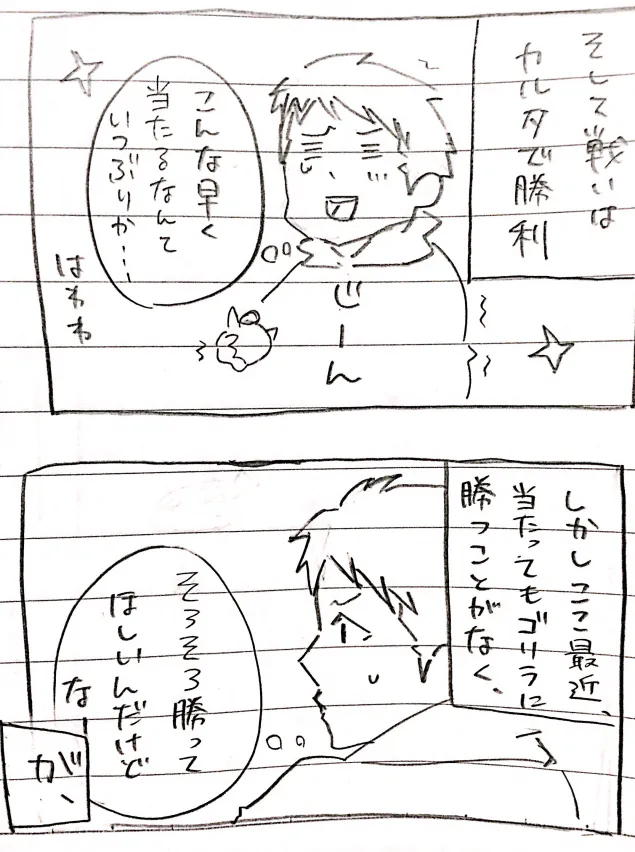 そして戦いは
カルタで勝利
こんな早く
当たるなんて
いつぶりか…
はわわ
じーん
しかしここ最近、
当たってもゴリラに
勝つことがなく、
そろそろ勝って
ほしいんだけど
な
が、